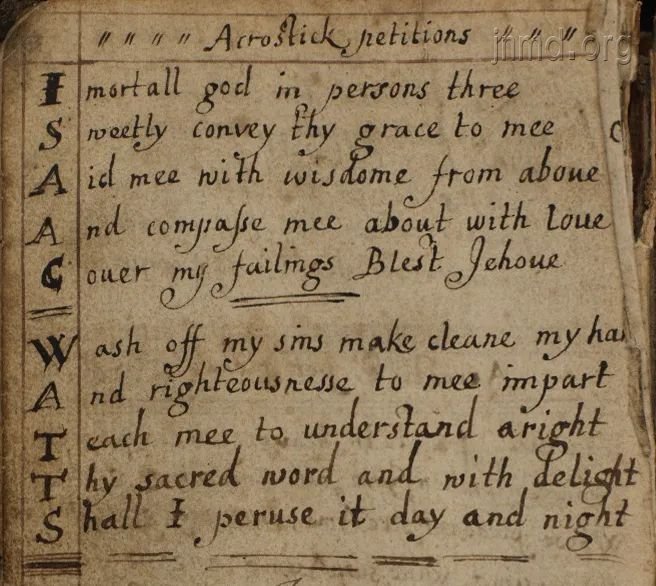 " " " " Acrostick petitions " " "
jnmd.org
Imortall god in persons three
Sweetly convey thy grace to mee
Aid mee with wisdome from aboue
And compasse mee about with loue
Couer my failings Blest Jehoue
Wash off my sins make cleane my ha
And righteousnesse to mee impart
Teach mee to understand aright
Thy sacred word and with delight
Shall I peruse it day and night